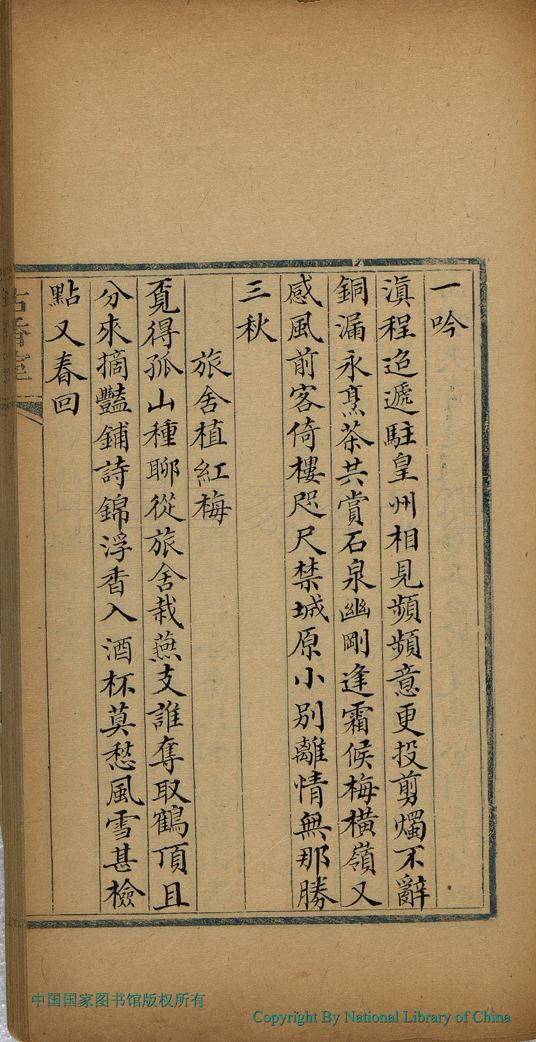 一吟
滇程迢遞駐皇州相見頻頻意更投剪燭不辭
銅漏永烹茶共賞石泉幽剛逢霜候梅橫嶺又
感風前客倚樓咫尺禁城原小別離情無那勝
三秋
旅舍植紅梅
覔得孤山種聊從旅舍栽燕支誰奪取鶴頂且
分來摘豔鋪詩錦浮香入酒杯莫愁風雪甚檢
點又春回
中国国家图书馆版权所有
Copyright By National Library of China